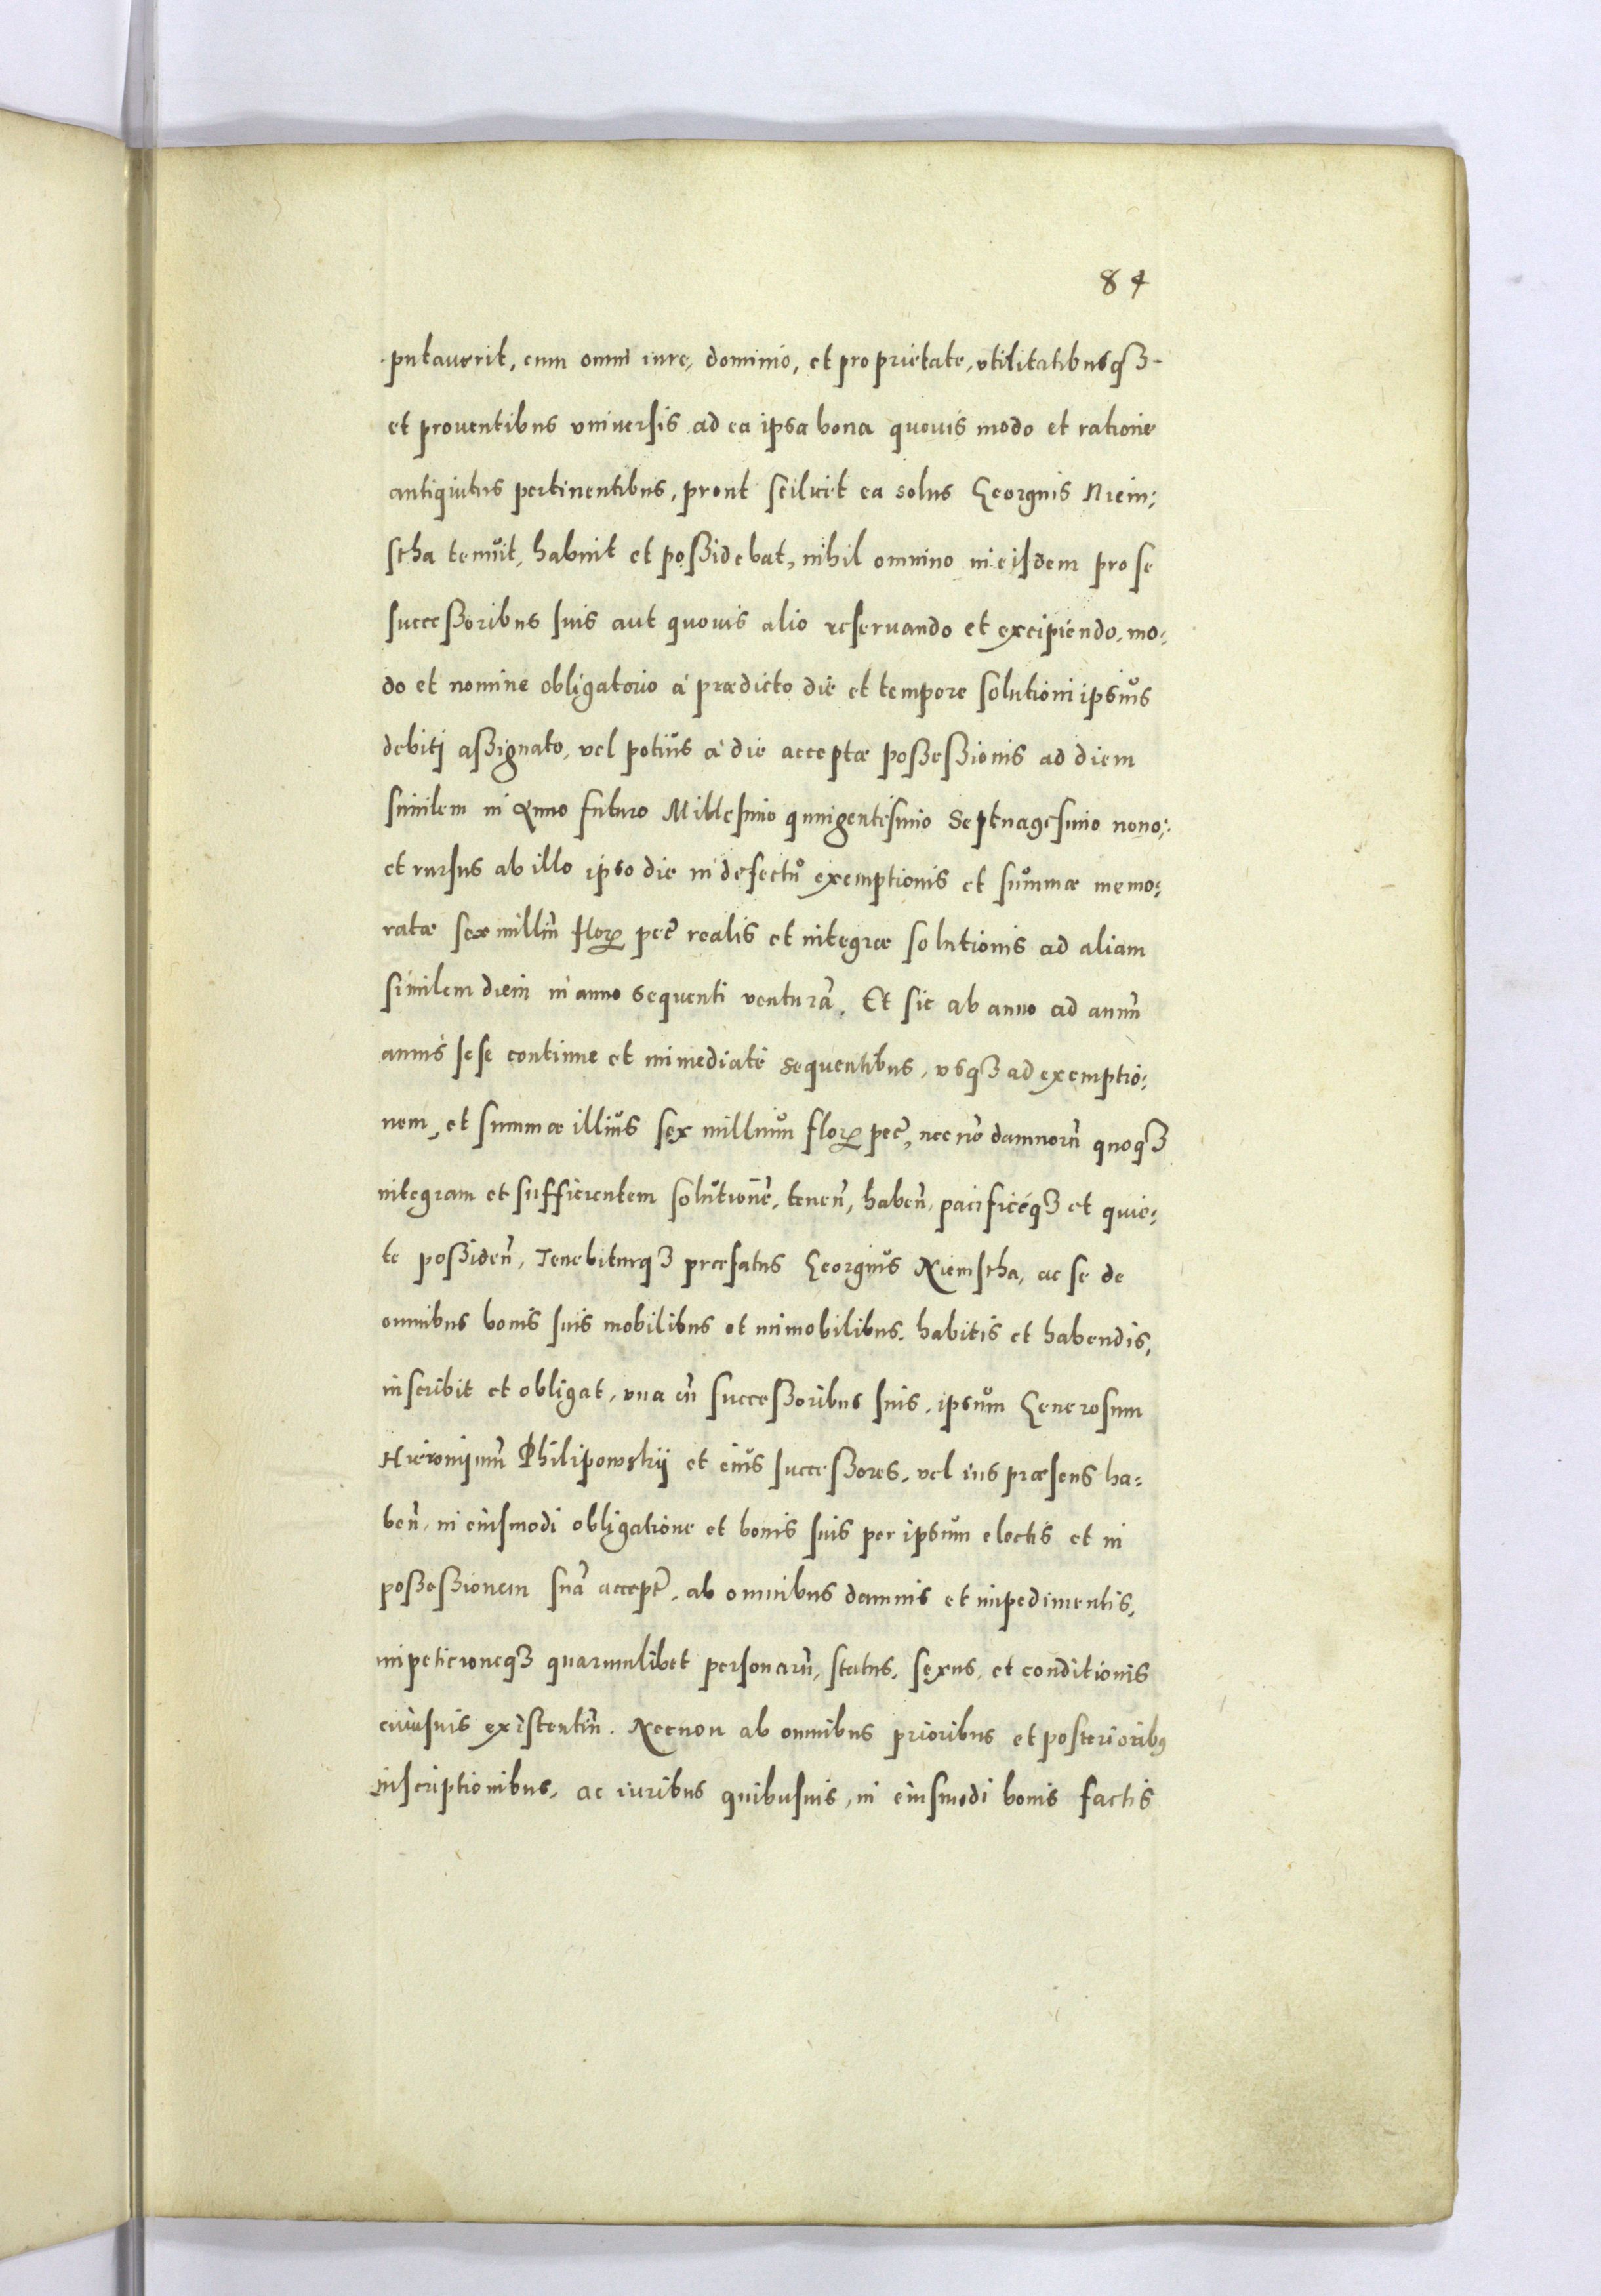 84
putauerit, cum omni iure, dominio, et proprietate, vtilitatibusq3
et prouentibus vniuersis ad ea ipsa bona quouis modo et ratione
antiquitus pertinentibus, prout scilicet ea solus Georgius Niem:
stha tenuit, habuit et poßidebat, nihil omnino in eisdem pro se
succeßoribus suis aut quouis alio reseruando et excipiendo, mo:
do et nomine obligatorio à prædicto die et tempore solutioni ipsius
debitj aßignato, vel potius à die acceptæ poßeßionis ad diem
similem in Anno futuro Millesimo quingentesimo Septuagesimo nono:
et rursus ab illo ipso die in defectu exemptionis et summæ memo:
ratæ sex milliū floꝝ pec̃ realis et integræ solutionis ad aliam
similem diem in anno sequenti venturā. Et sic ab anno ad annū
annis sese continue et immediatè sequentibus, vsq3 ad exemptio:
nem, et summæ illius sex millium floꝝ pec̃, necnō damnorū quoq3
integram et sufficientem solutionē, tenen̄, haben̄, pacificèq3 et quie:
te poßiden̄, Tenebiturq3 præfatus Georgius Niemstha, ac se de
omnibus bonis suis mobilibus et immobilibus, habitis et habendis,
inscribit et obligat, vna cū succeßoribus suis, ipsum Generosum
Hieronijmū Philipowskij et eius succeßores, vel ius præsens ha:
ben̄, in eiusmodi obligatione et bonis suis per ipsum electis et in
poßeßionem suā accept̄, ab omnibus damnis et impedimentis,
impeticioneq3 quarumlibet personarū, status, sexus, et conditionis
cuiusuis existentiū. Necnon ab omnibus prioribus et posterioribꝰ
inscriptionibus, ac iuribus quibusuis, in eiusmodi bonis factis